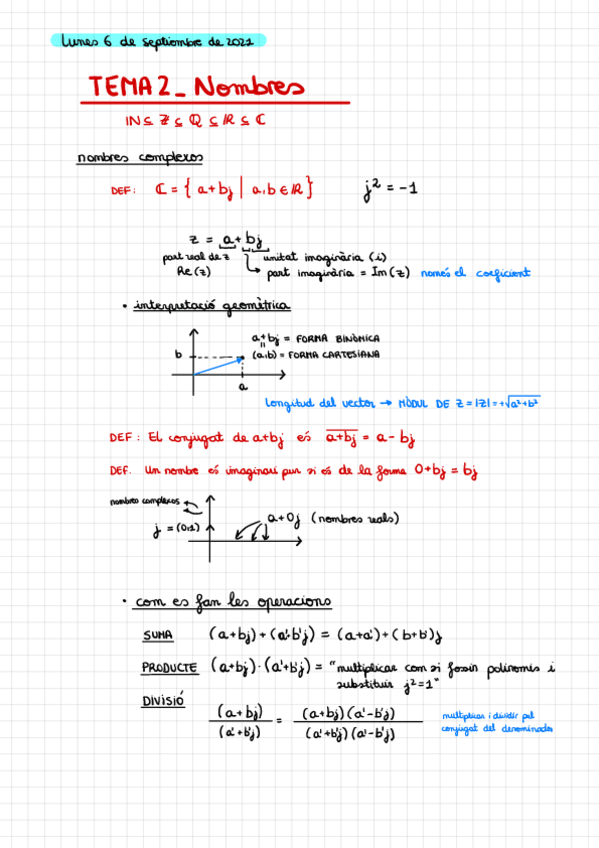 Lunes 6 de septiembre de 2021
TEMA 2_ Nombres
ℕ ⊆ ℤ ⊆ ℚ ⊆ ℝ ⊆ ℂ
nombres complexos
DEF: ℂ = { a+bj | a,b ∈ ℝ } j² = -1
z = a + bj
part real de z unitat imaginària (i)
Re(z) part imaginària = Im(z) només el coeficient
• interpretació geomètrica
a+bj = FORMA BINÒMICA
b (a,b) = FORMA CARTESIANA
a
Longitud del vector → MÒDUL DE Z = |Z| = +√a²+b²
DEF: El conjugat de a+bj és a+bj = a - bj
DEF. Un nombre és imaginari pur si és de la forma 0+bj = bj
nombres complexos
a+0j (nombres reals)
j = (0,1)
• com es fan les operacions
SUMA (a+bj)+(a'+b'j) = (a+a')+(b+b')j
PRODUCTE (a+bj)·(a'+b'j) = "multiplicar com si fossin polinomis i
substituir j²=1"
DIVISIÓ
(a+bj) = (a+bj)(a'-b'j) multiplicar i dividir pel
(a'+b'j) (a'+b'j)(a'-b'j) conjugat del denominador